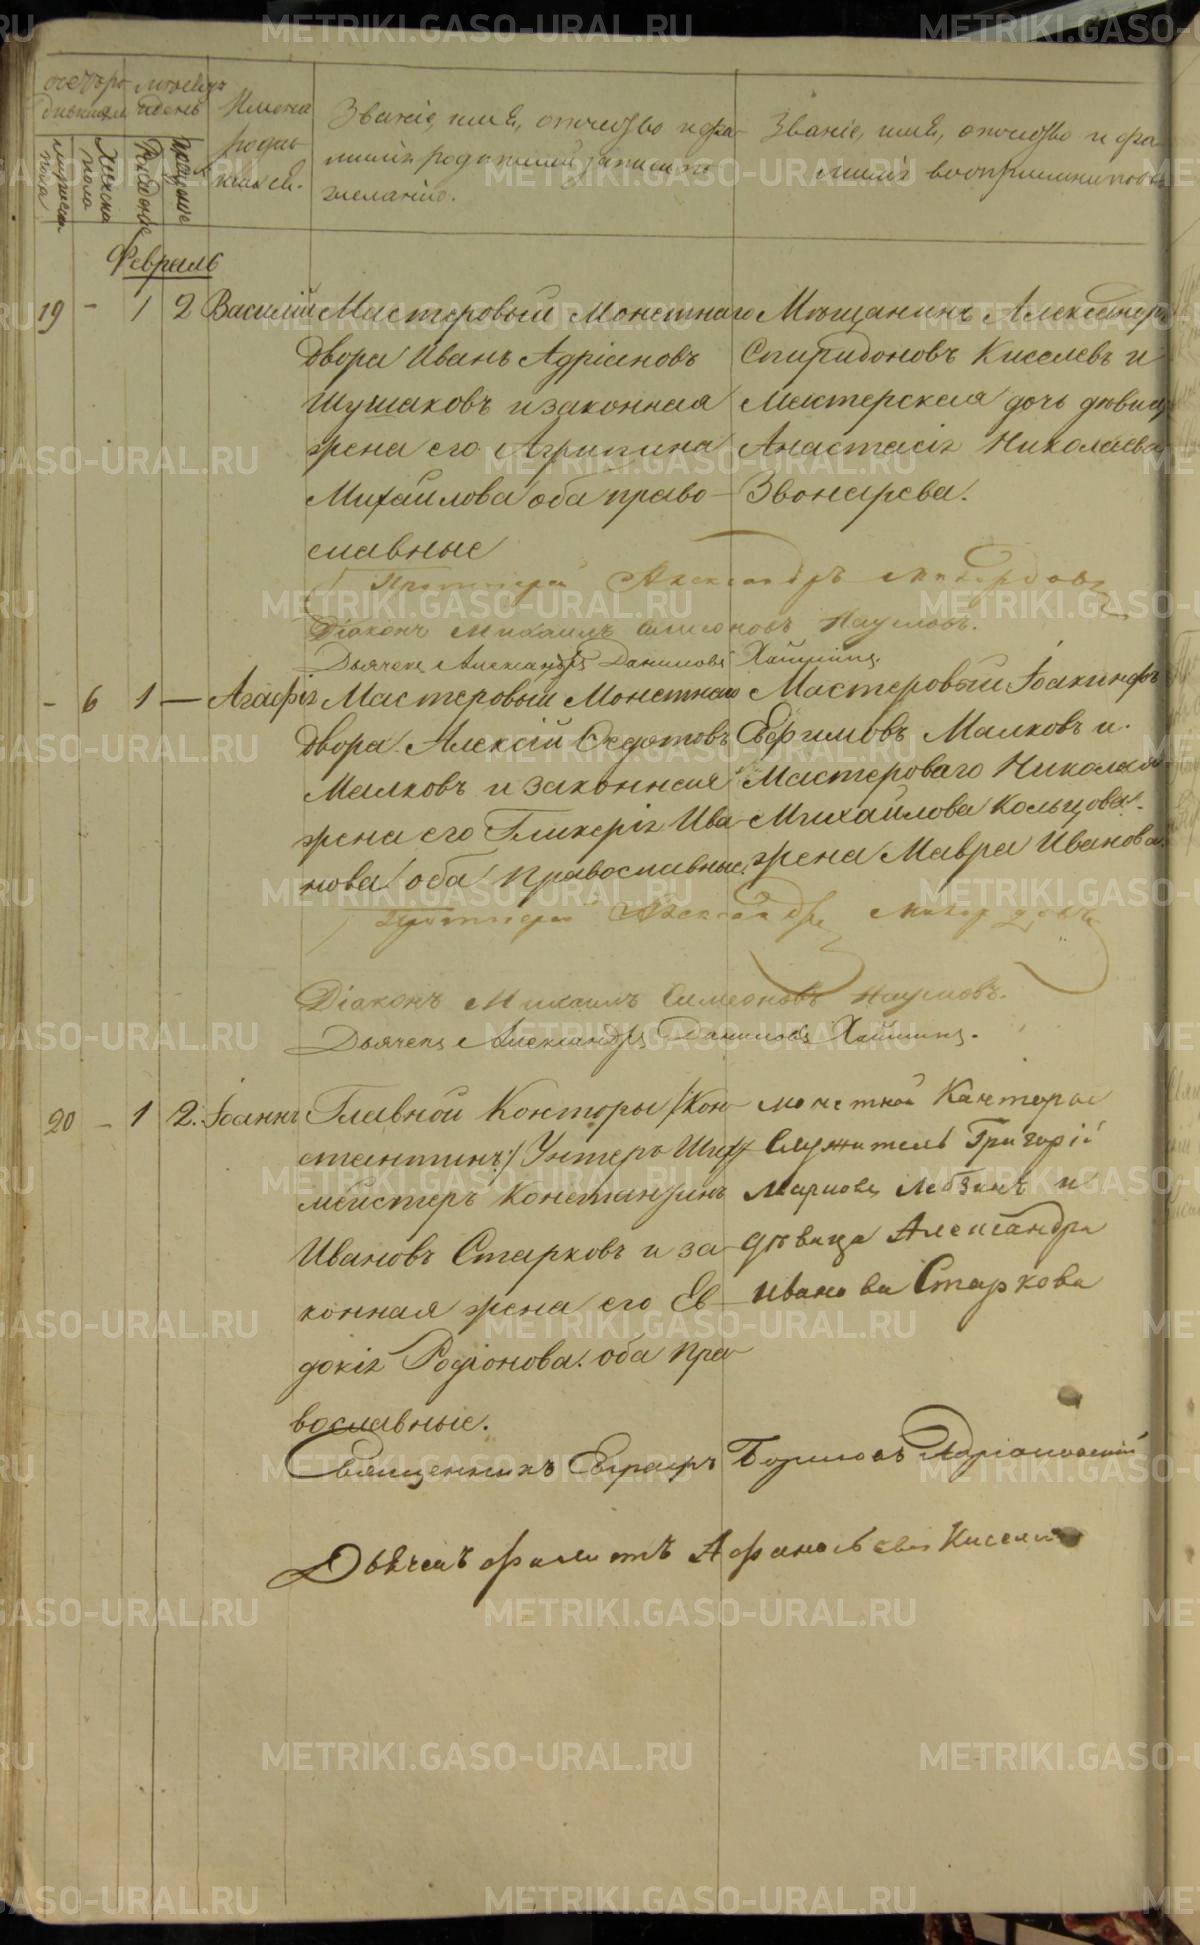 Счетъ ро- Мѣсяцъ
дившихся и день
Мужеска пола
Женска пола
Рожденіе
Крещеніе
Имена родив-
шихся.
Званіе, имя, отчество и фа-
милія родителей, и какого
Званіе, имя, отчество и фа-
милія воспріемниковъ
Февраль
19 - 1 2 Василій
Мастеровый Монетнаго
двора Иванъ Адріановъ
Шушаковъ и законная
жена его Агрипина
Михайлова оба право-
славные
Мѣщанинъ Александръ
Спиридоновъ Киселевъ и
Мастерская дочь девица
Анастасія Николаева
Звонарева.
Протоіерей Александръ
Діаконъ Михаилъ Симеоновъ Наумовъ.
Дьячекъ Александръ Даниловъ
- 6 1 — Агафія
Мастеровый Монетнаго
двора Алексій Ѳедотовъ
Малковъ и законная
жена его Гликерія Ива-
нова оба Православные.
Мастеровый Іоакинфъ
Ефимовъ Малковъ и
Мастероваго Николая
Михайлова Кольцова
жена Мавра Иванова.
Протоіерей Александръ
Діаконъ Михаилъ Симеоновъ Наумовъ.
Дьячекъ Александръ Даниловъ
20 - 1 2. Іоаннъ
Главной Конторы /Кон-
стантинъ/ Унтеръ Шихт-
мейстеръ Константинъ
Ивановъ Старковъ и за-
конная жена его Ев-
докія Родіонова. оба пра-
вославные.
монетной Канторы
Служитель Григорій
Марковъ и
дѣвица Александра
Иванова Старкова
Священникъ Евграфъ Борисовъ Адріановскій
Дьячекъ Филиппъ Афанасьевъ
METRIKI.GASO-URAL.RU